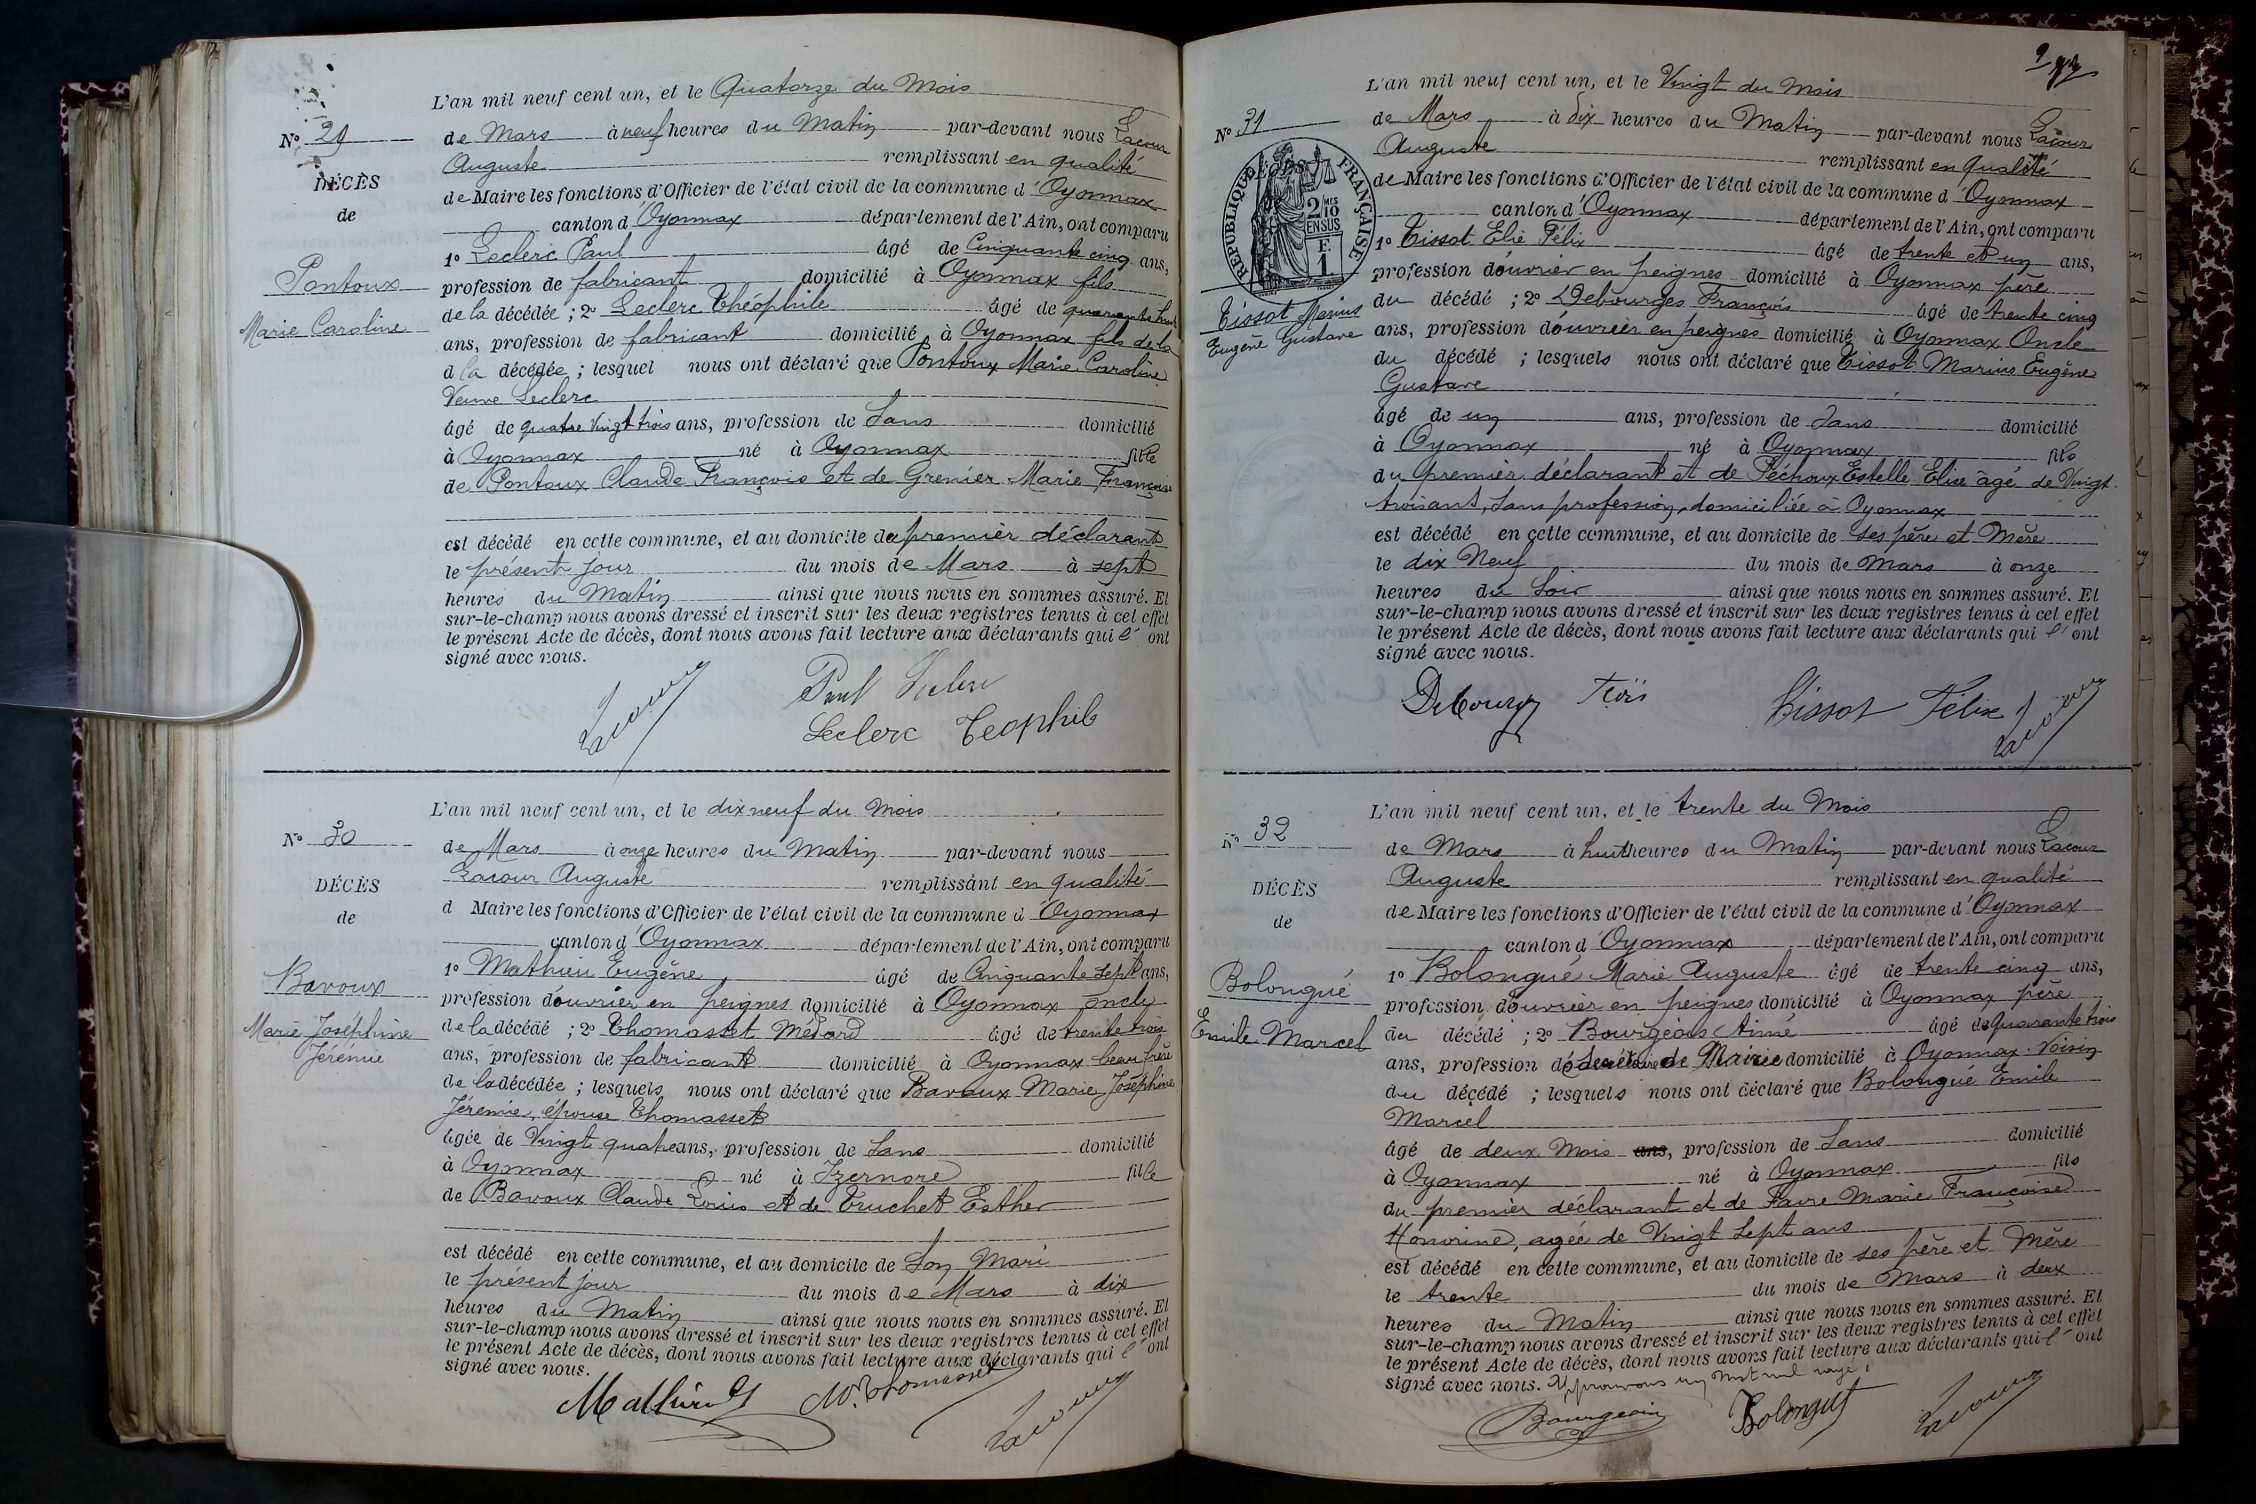 L'an mil neuf cent un, et le Quatorze du Mois
N° 29
de Mars à neuf heures du Matin par-devant nous Lacour
Auguste remplissant en qualité
DÉCÈS
de Maire les fonctions d'Officier de l'état civil de la commune d'Oyonnax
de
canton d'Oyonnax département de l'Ain, ont comparu
1° Leclerc Paul âgé de Cinquante cinq ans,
Pontoux
profession de fabricant domicilié à Oyonnax fils
de la décédée ; 2° Leclerc Théophile âgé de quarante huit
Marie Caroline
ans, profession de fabricant domicilié à Oyonnax fils de la
d la décédée ; lesquel nous ont déclaré que Pontoux Marie Caroline
Veuve Leclerc
âgé de quatre Vingt trois ans, profession de Sans domicilié
à Oyonnax né à Oyonnax fille
de Pontoux Claude François et de Grenier Marie Françoise
est décédé en cette commune, et au domicile du premier déclarant
le présent jour du mois de Mars à sept
heures du Matin ainsi que nous nous en sommes assuré. Et
sur-le-champ nous avons dressé et inscrit sur les deux registres tenus à cet effet
le présent Acte de décès, dont nous avons fait lecture aux déclarants qui l' ont
signé avec nous.
Lacour Paul Leclerc
Leclerc Teophile
L'an mil neuf cent un, et le dix neuf du Mois
N° 30
de Mars à onze heures du Matin par-devant nous
Lacour Auguste remplissant en qualité
DÉCÈS
d Maire les fonctions d'Officier de l'état civil de la commune d'Oyonnax
de
canton d'Oyonnax département de l'Ain, ont comparu
1° Mathieu Eugène âgé de Cinquante sept ans,
Bavoux
profession d'ouvrier en peignes domicilié à Oyonnax oncle
Marie Joséphine
Jérémie
de la décédé ; 2° Thomasset Médard âgé de trente trois
ans, profession de fabricant domicilié à Oyonnax beau frère
de la décédée ; lesquels nous ont déclaré que Bavoux Marie Joséphine
Jérémie, épouse Thomasset
âgée de Vingt quatre ans, profession de Sans domicilié
à Oyonnax né à Izernore fille
de Bavoux Claude Louis et de Truchet Esther
est décédé en cette commune, et au domicile de Son Mari
le présent jour du mois de Mars à dix
heures du Matin ainsi que nous nous en sommes assuré. Et
sur-le-champ nous avons dressé et inscrit sur les deux registres tenus à cet effet
le présent Acte de décès, dont nous avons fait lecture aux déclarants qui l' ont
signé avec nous.
Mathieu M. Thomasset Lacour
L'an mil neuf cent un, et le Vingt du Mois
N° 31
de Mars à dix heures du Matin par-devant nous Lacour
Auguste remplissant en qualité
RÉPUBLIQUE FRANÇAISE
2 MES
10
EN SUS
F.
1
de Maire les fonctions d'Officier de l'état civil de la commune d'Oyonnax
canton d'Oyonnax département de l'Ain, ont comparu
1° Tissot Elie Félix âgé de trente et un ans,
profession d'ouvrier en peignes domicilié à Oyonnax père
Tissot Marius
Eugène Gustave
du décédé ; 2° Debourges François âgé de trente cinq
ans, profession d'ouvrier en peignes domicilié à Oyonnax Oncle
du décédé ; lesquels nous ont déclaré que Tissot Marius Eugène
Gustave
âgé de un ans, profession de Sans domicilié
à Oyonnax né à Oyonnax fils
du premier déclarant et de Péchoux Estelle Elise âgé de Vingt
trois ans, sans profession, domiciliée à Oyonnax
est décédé en cette commune, et au domicile de ses père et Mère
le dix Neuf du mois de Mars à onze
heures du Soir ainsi que nous nous en sommes assuré. Et
sur-le-champ nous avons dressé et inscrit sur les deux registres tenus à cet effet
le présent Acte de décès, dont nous avons fait lecture aux déclarants qui l' ont
signé avec nous.
Tissot Félix Lacour
L'an mil neuf cent un, et le trente du Mois
N° 32
de Mars à huit heures du Matin par-devant nous Lacour
Auguste remplissant en qualité
DÉCÈS
de Maire les fonctions d'Officier de l'état civil de la commune d'Oyonnax
de
canton d'Oyonnax département de l'Ain, ont comparu
1° Bolongué Marie Auguste âgé de trente cinq ans,
Bolongué
profession d'ouvrier en peignes domicilié à Oyonnax père
Emile Marcel
du décédé ; 2° Bourgeois Aimé âgé de quarante trois
ans, profession de Secrétaire de Mairie domicilié à Oyonnax Voisin
du décédé ; lesquels nous ont déclaré que Bolongué Emile
Marcel
âgé de deux Mois ans, profession de Sans domicilié
à Oyonnax né à Oyonnax fils
du premier déclarant et de Favre Marie Françoise
Honorine, agée de Vingt Sept ans
est décédé en cette commune, et au domicile de ses père et Mère
le trente du mois de Mars à deux
heures du Matin ainsi que nous nous en sommes assuré. Et
sur-le-champ nous avons dressé et inscrit sur les deux registres tenus à cet effet
le présent Acte de décès, dont nous avons fait lecture aux déclarants qui l' ont
signé avec nous. Approuvons un mot nul rayé.
Bourgeois Bolongué Lacour